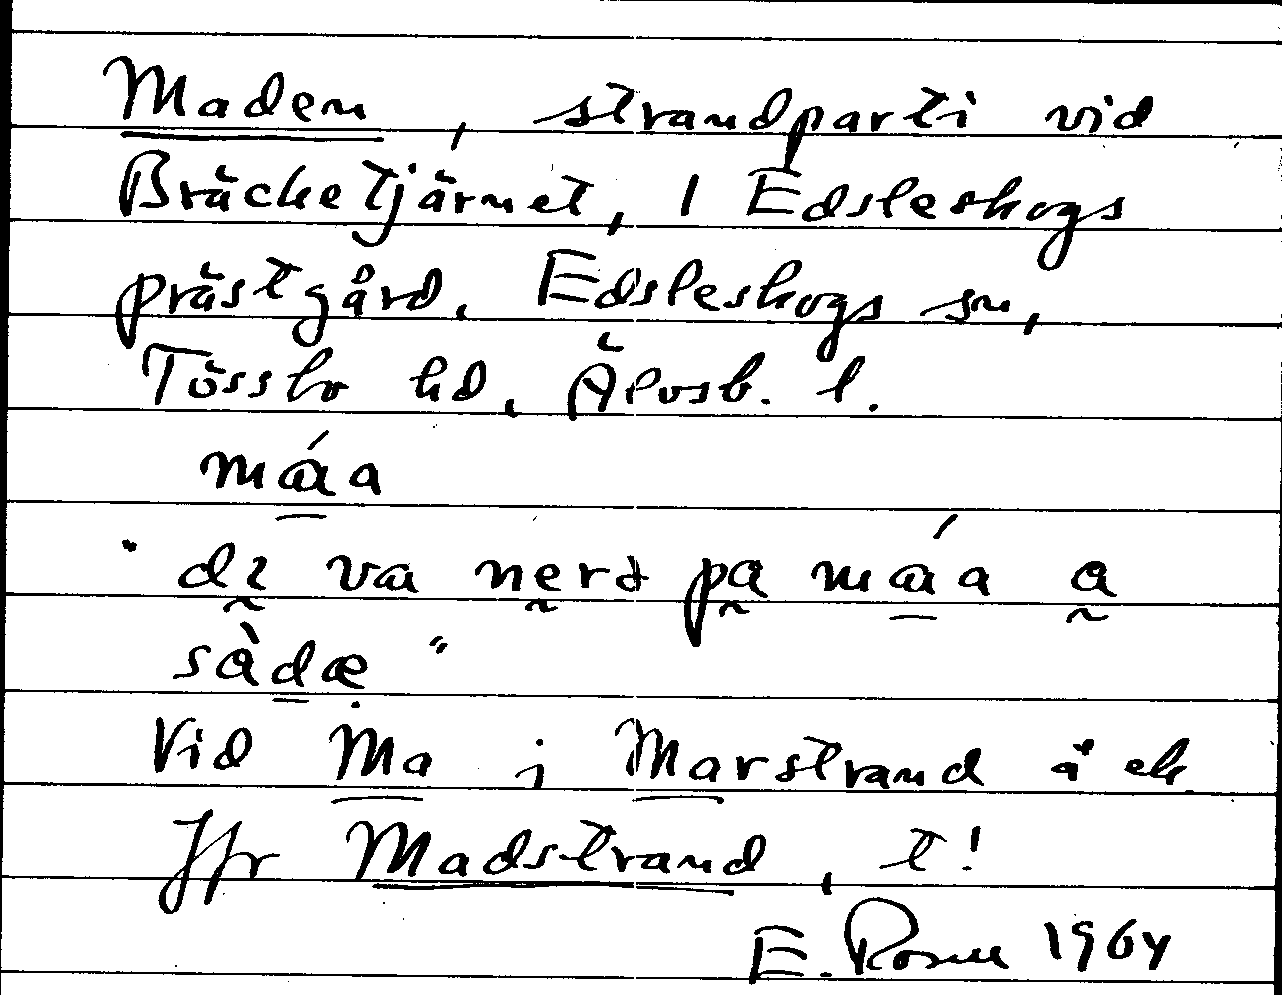 Maden, strandparti vid
Bräcketjärnet, 1 Edsleskogs
prästgård, Edsleskogs sn,
Tössbo hd, Älvsb. l.
máa
"dɩ va nerə pa máa a
sàdæ"
Vid Ma i Marstrand å ek
Jfr Madstrand, t!
E. 1964